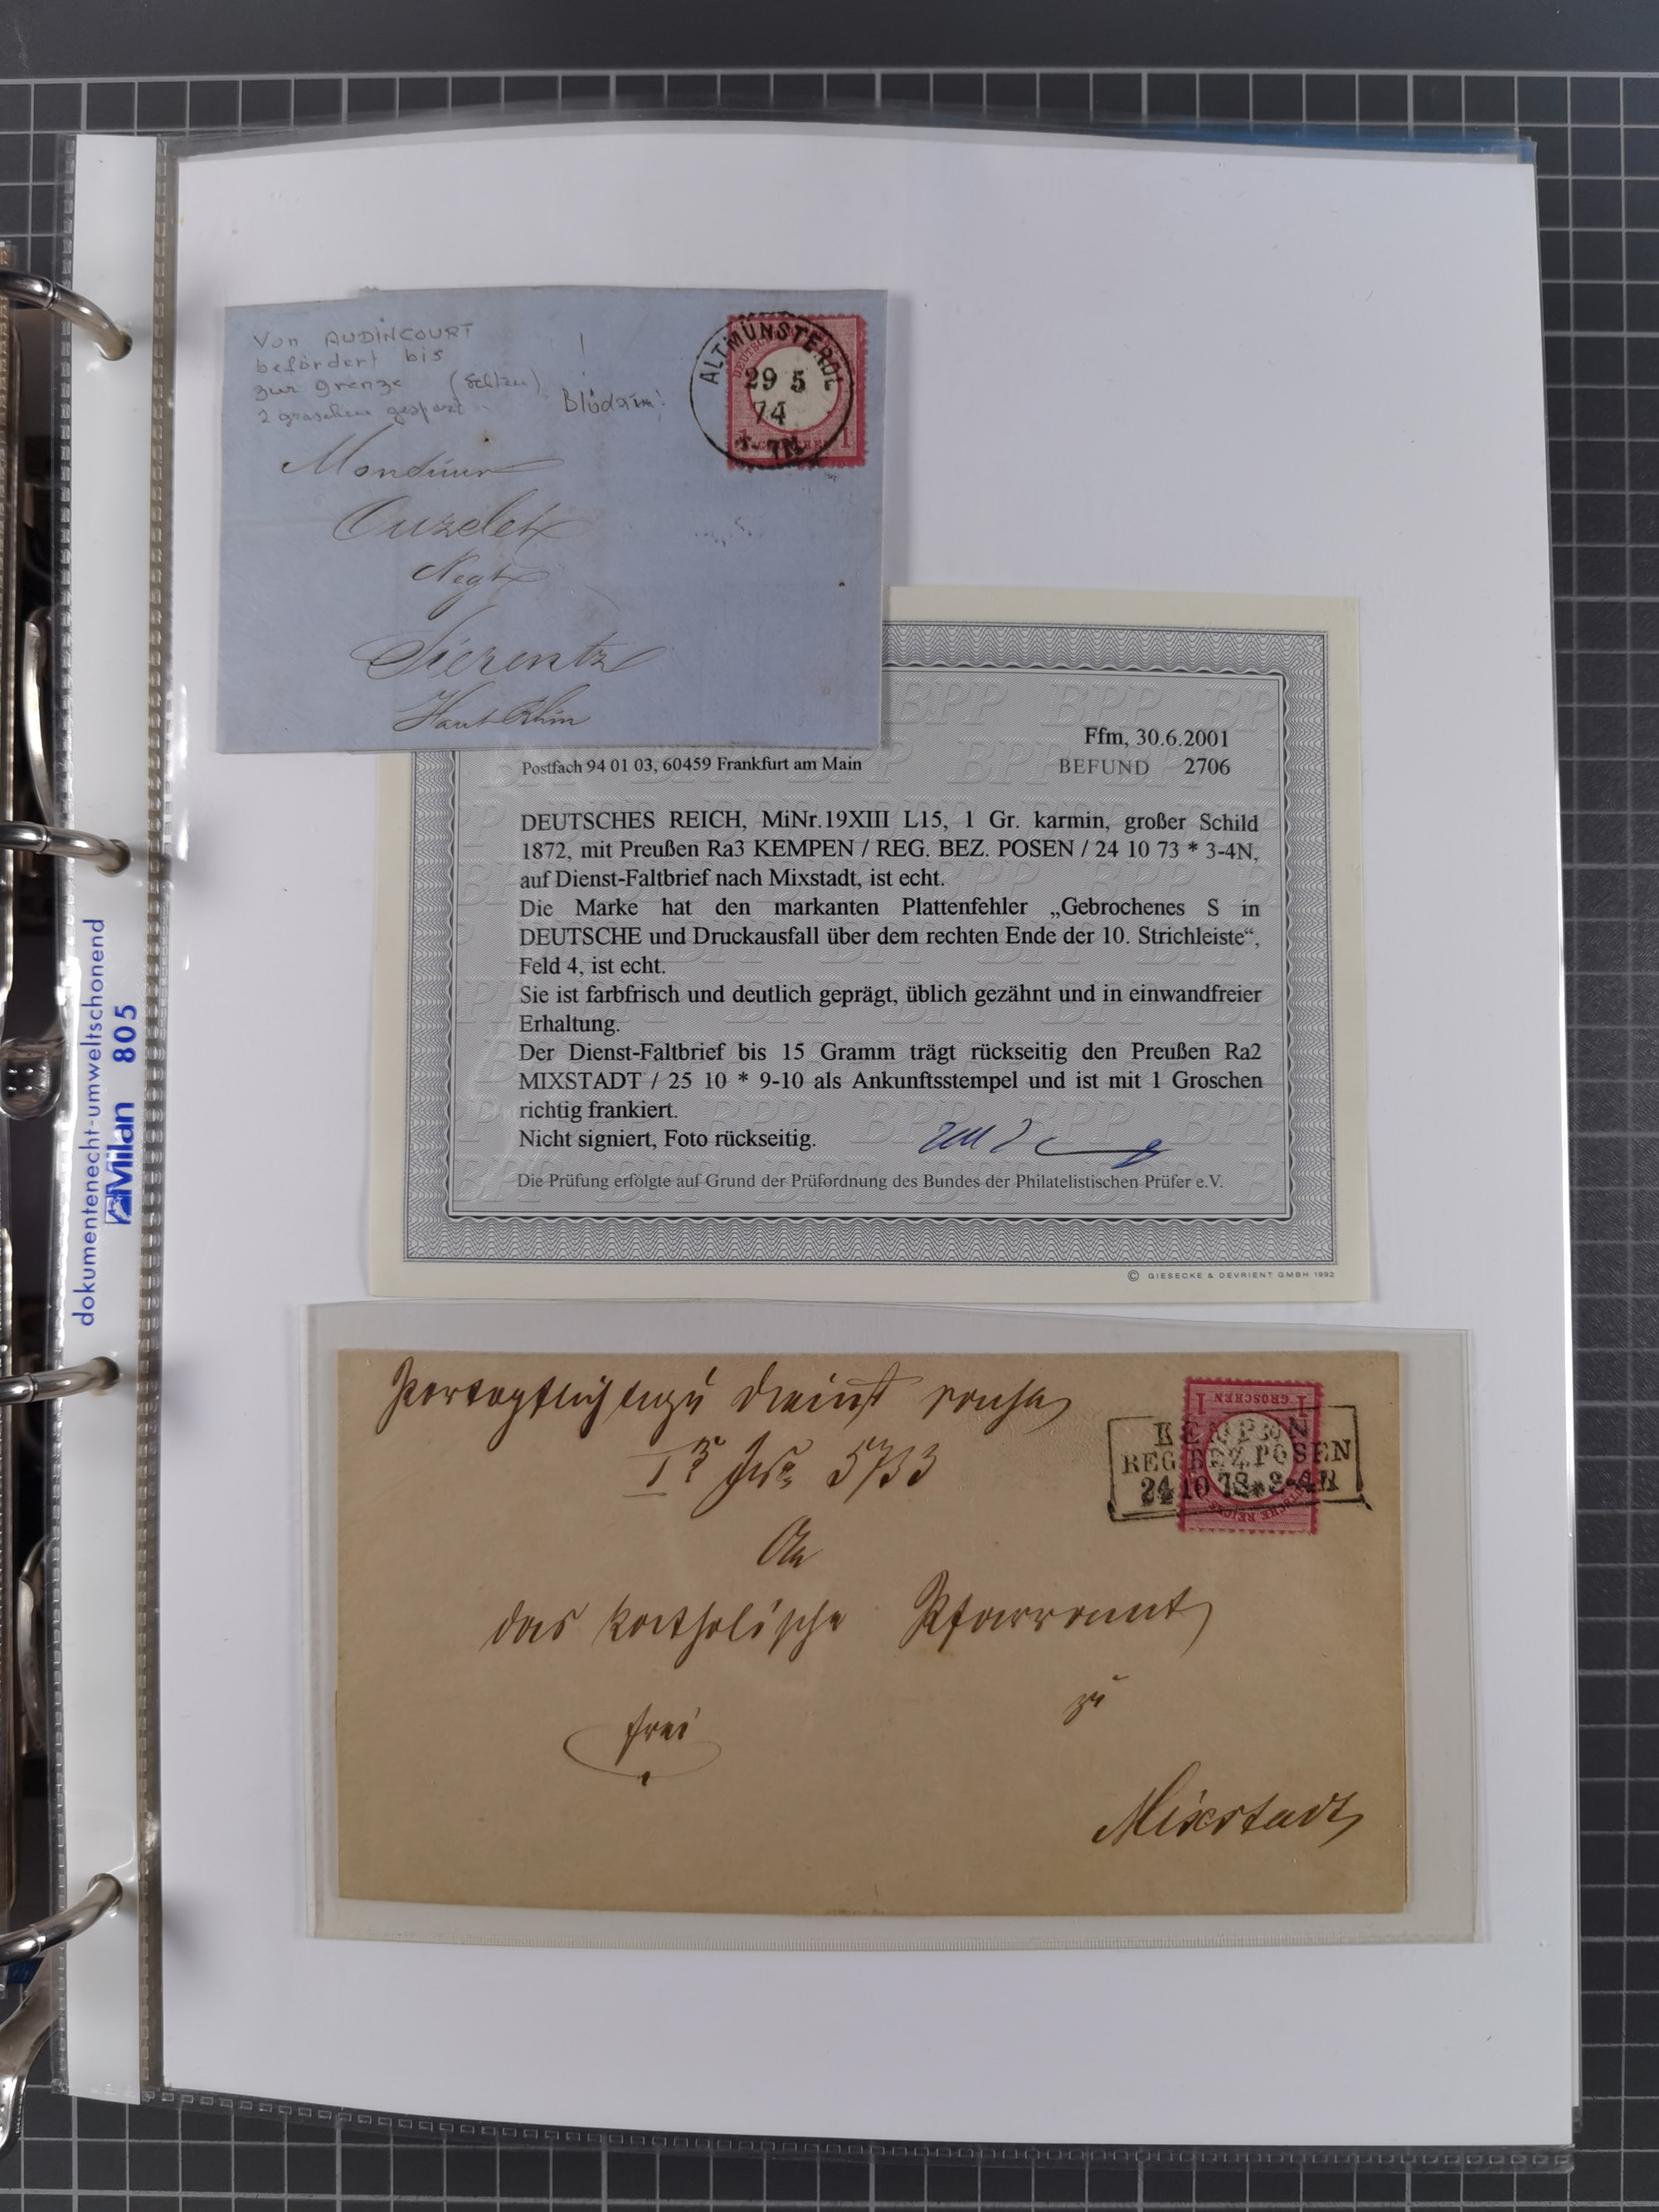 Von AUDINCOURT
befördert bis
zur Grenze (selten)
2 groschen gespart
!
ALTMÜNSTEROL
29 5
74
1 1
Monsieur
Ouzelet
Negt
Sierentz
Haut Rhin
Ffm, 30.6.2001
Postfach 94 01 03, 60459 Frankfurt am Main BEFUND 2706
DEUTSCHES REICH, MiNr.19XIII L15, 1 Gr. karmin, großer Schild
1872, mit Preußen Ra3 KEMPEN / REG. BEZ. POSEN / 24 10 73 * 3-4N,
auf Dienst-Faltbrief nach Mixstadt, ist echt.
Die Marke hat den markanten Plattenfehler „Gebrochenes S in
DEUTSCHE und Druckausfall über dem rechten Ende der 10. Strichleiste“,
Feld 4, ist echt.
Sie ist farbfrisch und deutlich geprägt, üblich gezähnt und in einwandfreier
Erhaltung.
Der Dienst-Faltbrief bis 15 Gramm trägt rückseitig den Preußen Ra2
MIXSTADT / 25 10 * 9-10 als Ankunftsstempel und ist mit 1 Groschen
richtig frankiert.
Nicht signiert, Foto rückseitig.
Die Prüfung erfolgte auf Grund der Prüfordnung des Bundes der Philatelistischen Prüfer e.V.
© GIESECKE & DEVRIENT GMBH 1992
dokumentenecht-umweltschonend
Milan 805
Portopflichtige Dienst sache
1 GROSCHEN 1
KEMPEN
REG.BEZ.POSEN
24 10 73*3-4N
DEUTSCHE REICHS
An
das katholische Pfarramt
frei
zu
Mixstadt